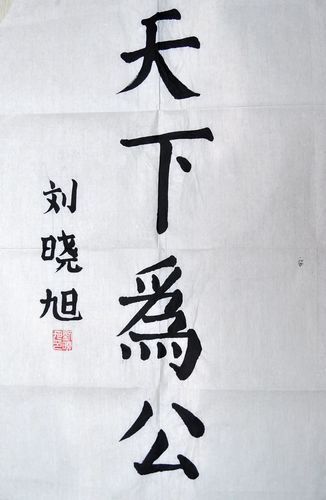 天下爲公
刘晓旭